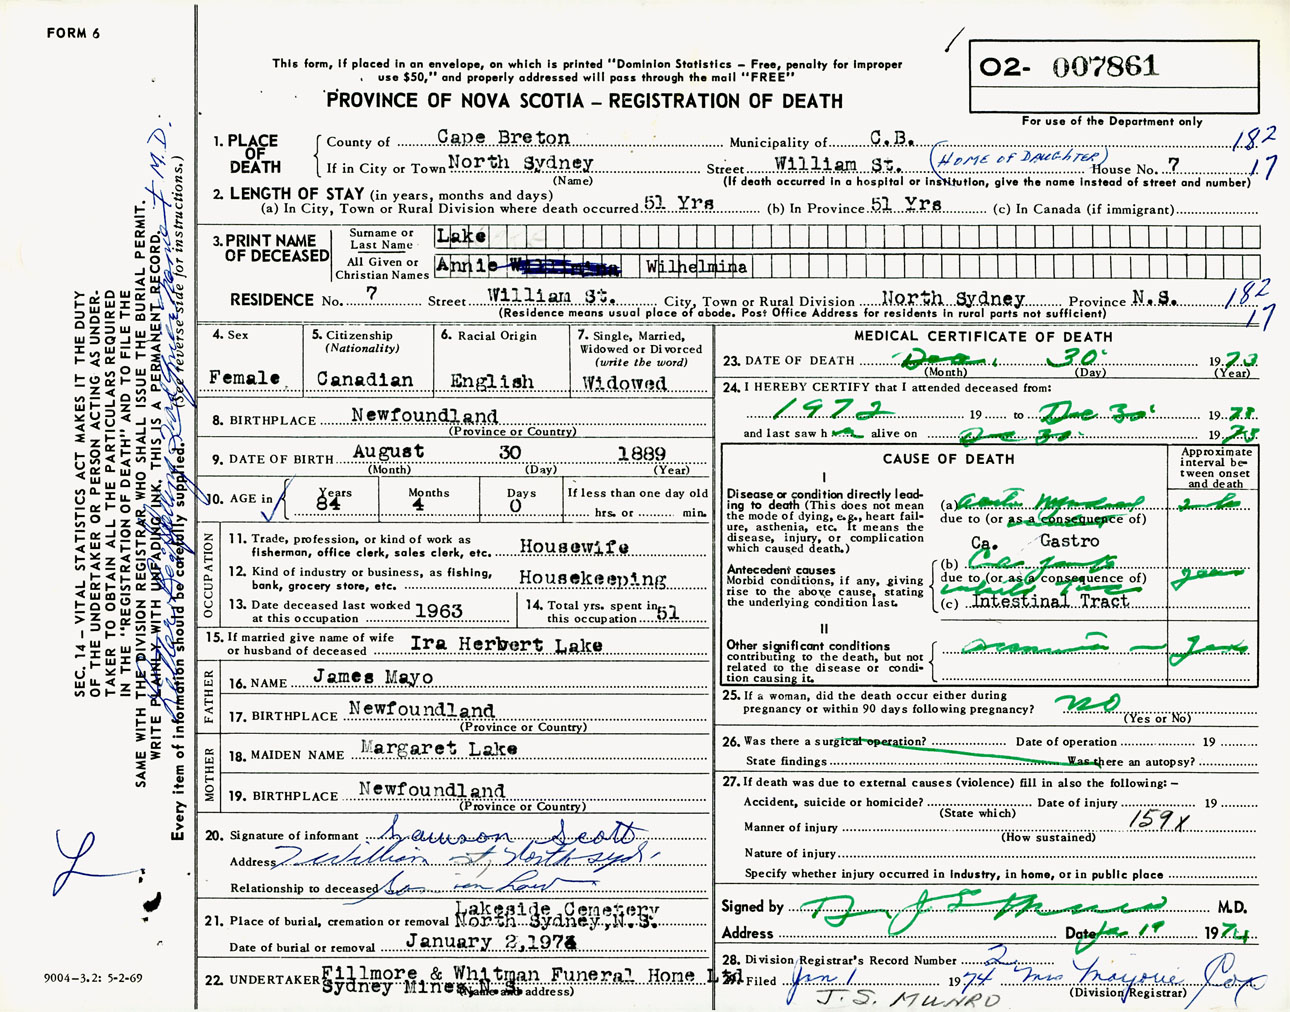 FORM 6
This form, if placed in an envelope, on which is printed "Dominion Statistics – Free, penalty for improper
use $50," and properly addressed will pass through the mail "FREE"
PROVINCE OF NOVA SCOTIA – REGISTRATION OF DEATH
02- 007861
For use of the Department only
182
17
1. PLACE OF DEATH
County of Cape Breton Municipality of C.B.
If in City or Town North Sydney Street William St. (HOME OF DAUGHTER) House No. 7
(Name) (If death occurred in a hospital or institution, give the name instead of street and number)
2. LENGTH OF STAY (in years, months and days)
(a) In City, Town or Rural Division where death occurred 51 Yrs (b) In Province 51 Yrs (c) In Canada (if immigrant)
3. PRINT NAME OF DECEASED
Surname or Last Name Lake
All Given or Christian Names Annie Wilhelmina
RESIDENCE No. 7 Street William St. City, Town or Rural Division North Sydney Province N.S.
(Residence means usual place of abode. Post Office Address for residents in rural parts not sufficient)
182
17
4. Sex
Female
5. Citizenship
(Nationality)
Canadian
6. Racial Origin
English
7. Single, Married,
Widowed or Divorced
(write the word)
Widowed
8. BIRTHPLACE Newfoundland
(Province or Country)
9. DATE OF BIRTH August 30 1889
(Month) (Day) (Year)
10. AGE in
Years Months Days If less than one day old
84 4 0 hrs. or min.
OCCUPATION
11. Trade, profession, or kind of work as
fisherman, office clerk, sales clerk, etc. Housewife
12. Kind of industry or business, as fishing,
bank, grocery store, etc. Housekeeping
13. Date deceased last worked
at this occupation 1963
14. Total yrs. spent in
this occupation 51
15. If married give name of wife
or husband of deceased Ira Herbert Lake
FATHER
16. NAME James Mayo
17. BIRTHPLACE Newfoundland
(Province or Country)
MOTHER
18. MAIDEN NAME Margaret Lake
19. BIRTHPLACE Newfoundland
(Province or Country)
20. Signature of informant Scott
Address 7 William st, North Syd.
Relationship to deceased Son in Law
21. Place of burial, cremation or removal Lakeside Cemetery
North Sydney, N.S.
Date of burial or removal January 2, 1974
22. UNDERTAKER Fillmore & Whitman Funeral Home Ltd
Sydney Mines, N.S.
(Name and address)
MEDICAL CERTIFICATE OF DEATH
23. DATE OF DEATH Dec. 30 1973
(Month) (Day) (Year)
24. I HEREBY CERTIFY that I attended deceased from:
1972 19 to Dec 30 1973
and last saw h alive on Dec 30 1973
CAUSE OF DEATH
Approximate
interval be-
tween onset
and death
I
Disease or condition directly lead-
ing to death (This does not mean
the mode of dying, e.g., heart fail-
ure, asthenia, etc. It means the
disease, injury, or complication
which caused death.)
(a)
due to (or as a consequence of)
Ca. Gastro
Antecedent causes
Morbid conditions, if any, giving
rise to the above cause, stating
the underlying condition last.
(b)
due to (or as a consequence of)
(c) Intestinal Tract
years
II
Other significant conditions
contributing to the death, but not
related to the disease or condi-
tion causing it.
years
25. If a woman, did the death occur either during
pregnancy or within 90 days following pregnancy? no
(Yes or No)
26. Was there a surgical operation? Date of operation 19
State findings Was there an autopsy?
27. If death was due to external causes (violence) fill in also the following: –
Accident, suicide or homicide? Date of injury 19
(State which)
Manner of injury 159X
(How sustained)
Nature of injury
Specify whether injury occurred in industry, in home, or in public place
Signed by M.D.
Address Date Jan 1st 1974
28. Division Registrar's Record Number 2
29. Filed Jan 1 1974 Mrs Marjorie Cox
(Division Registrar)
J. S. MUNRO
SEC. 14 – VITAL STATISTICS ACT MAKES IT THE DUTY
OF THE UNDERTAKER OR PERSON ACTING AS UNDER-
TAKER TO OBTAIN ALL THE PARTICULARS REQUIRED
IN THE "REGISTRATION OF DEATH" AND TO FILE THE
SAME WITH THE DIVISION REGISTRAR WHO SHALL ISSUE THE BURIAL PERMIT.
WRITE PLAINLY WITH UNFADING INK. THIS IS A PERMANENT RECORD.
Every item of information should be carefully supplied. (See reverse side for instructions.)
9004–3.2: 5-2-69